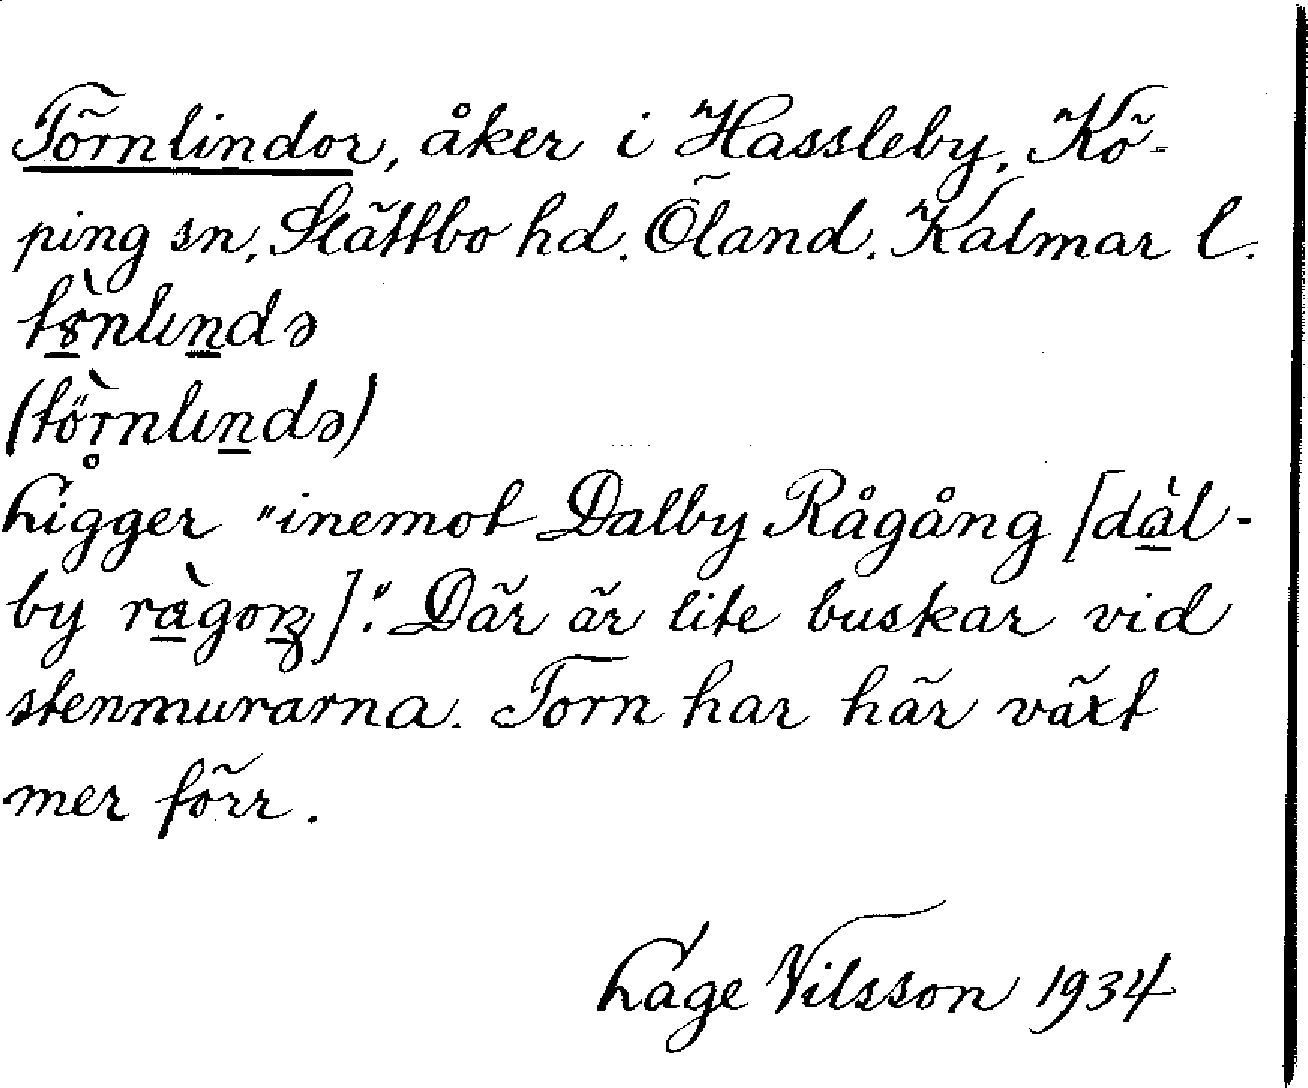 Törnlindor, åker i Hassleby, Kö-
ping sn, Slättbo hd. Öland. Kalmar l.
tö̀nlındə
(tö̀rnlındə)
Ligger "inemot Dalby Rågång [dàl-
by rågoŋ]". Där är lite buskar vid
stenmurarna. Torn har här växt
mer förr.
Lage Nilsson 1934